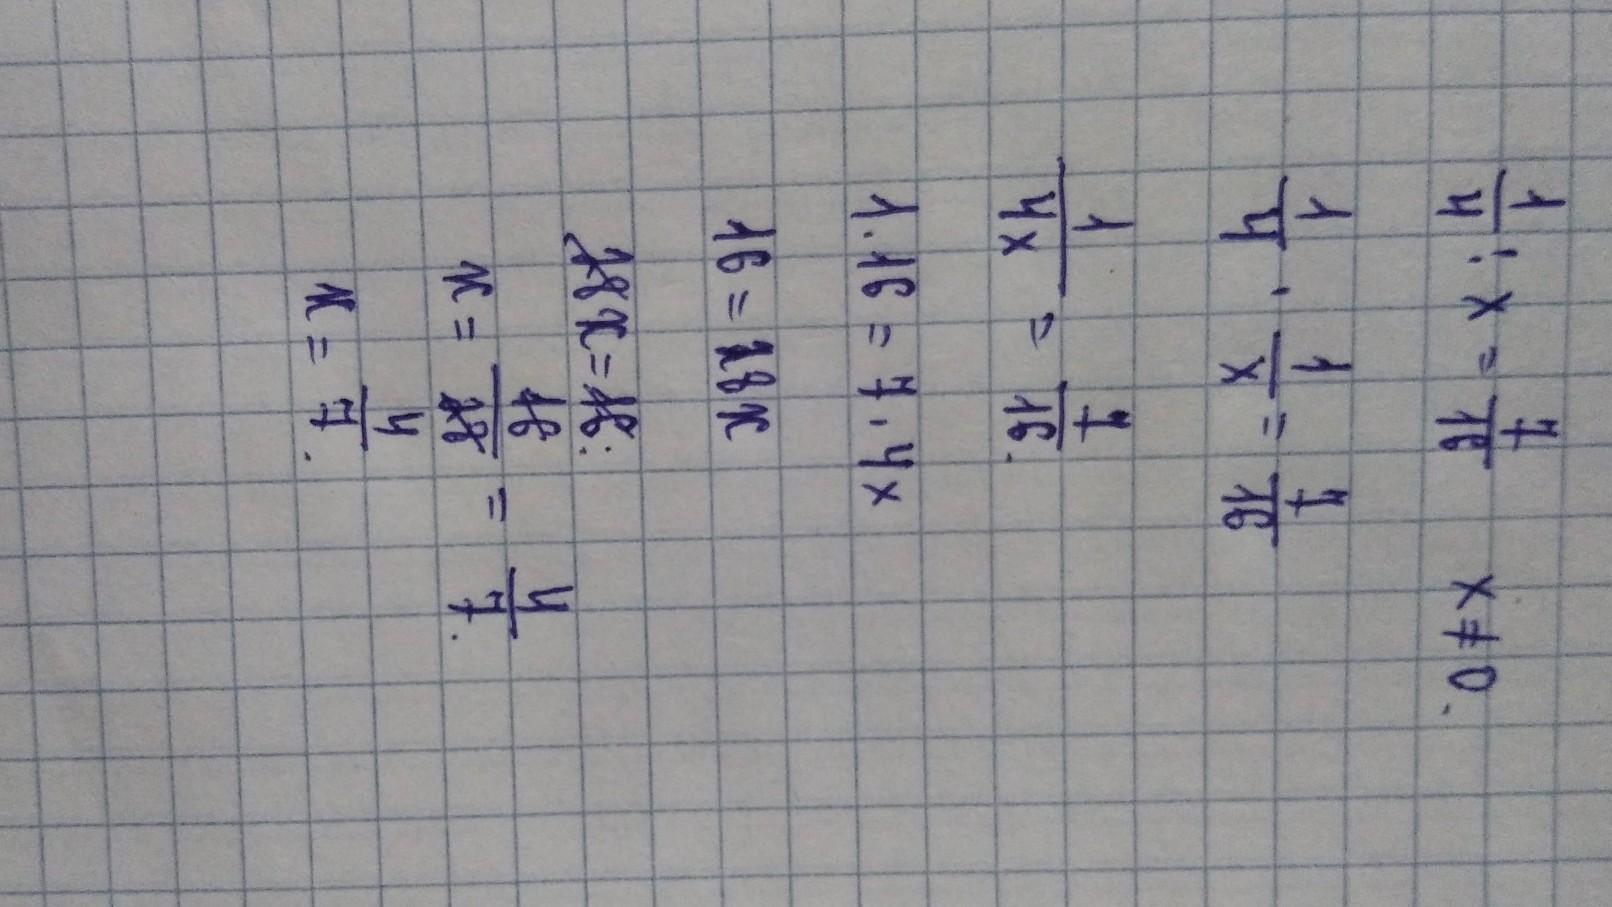 1/4 : x = 7/16   x ≠ 0.
1/4 · 1/x = 7/16
1/4x = 7/16.
1·16 = 7·4x
16 = 28x
28x = 16.
x = 16/28 = 4/7.
x = 4/7.